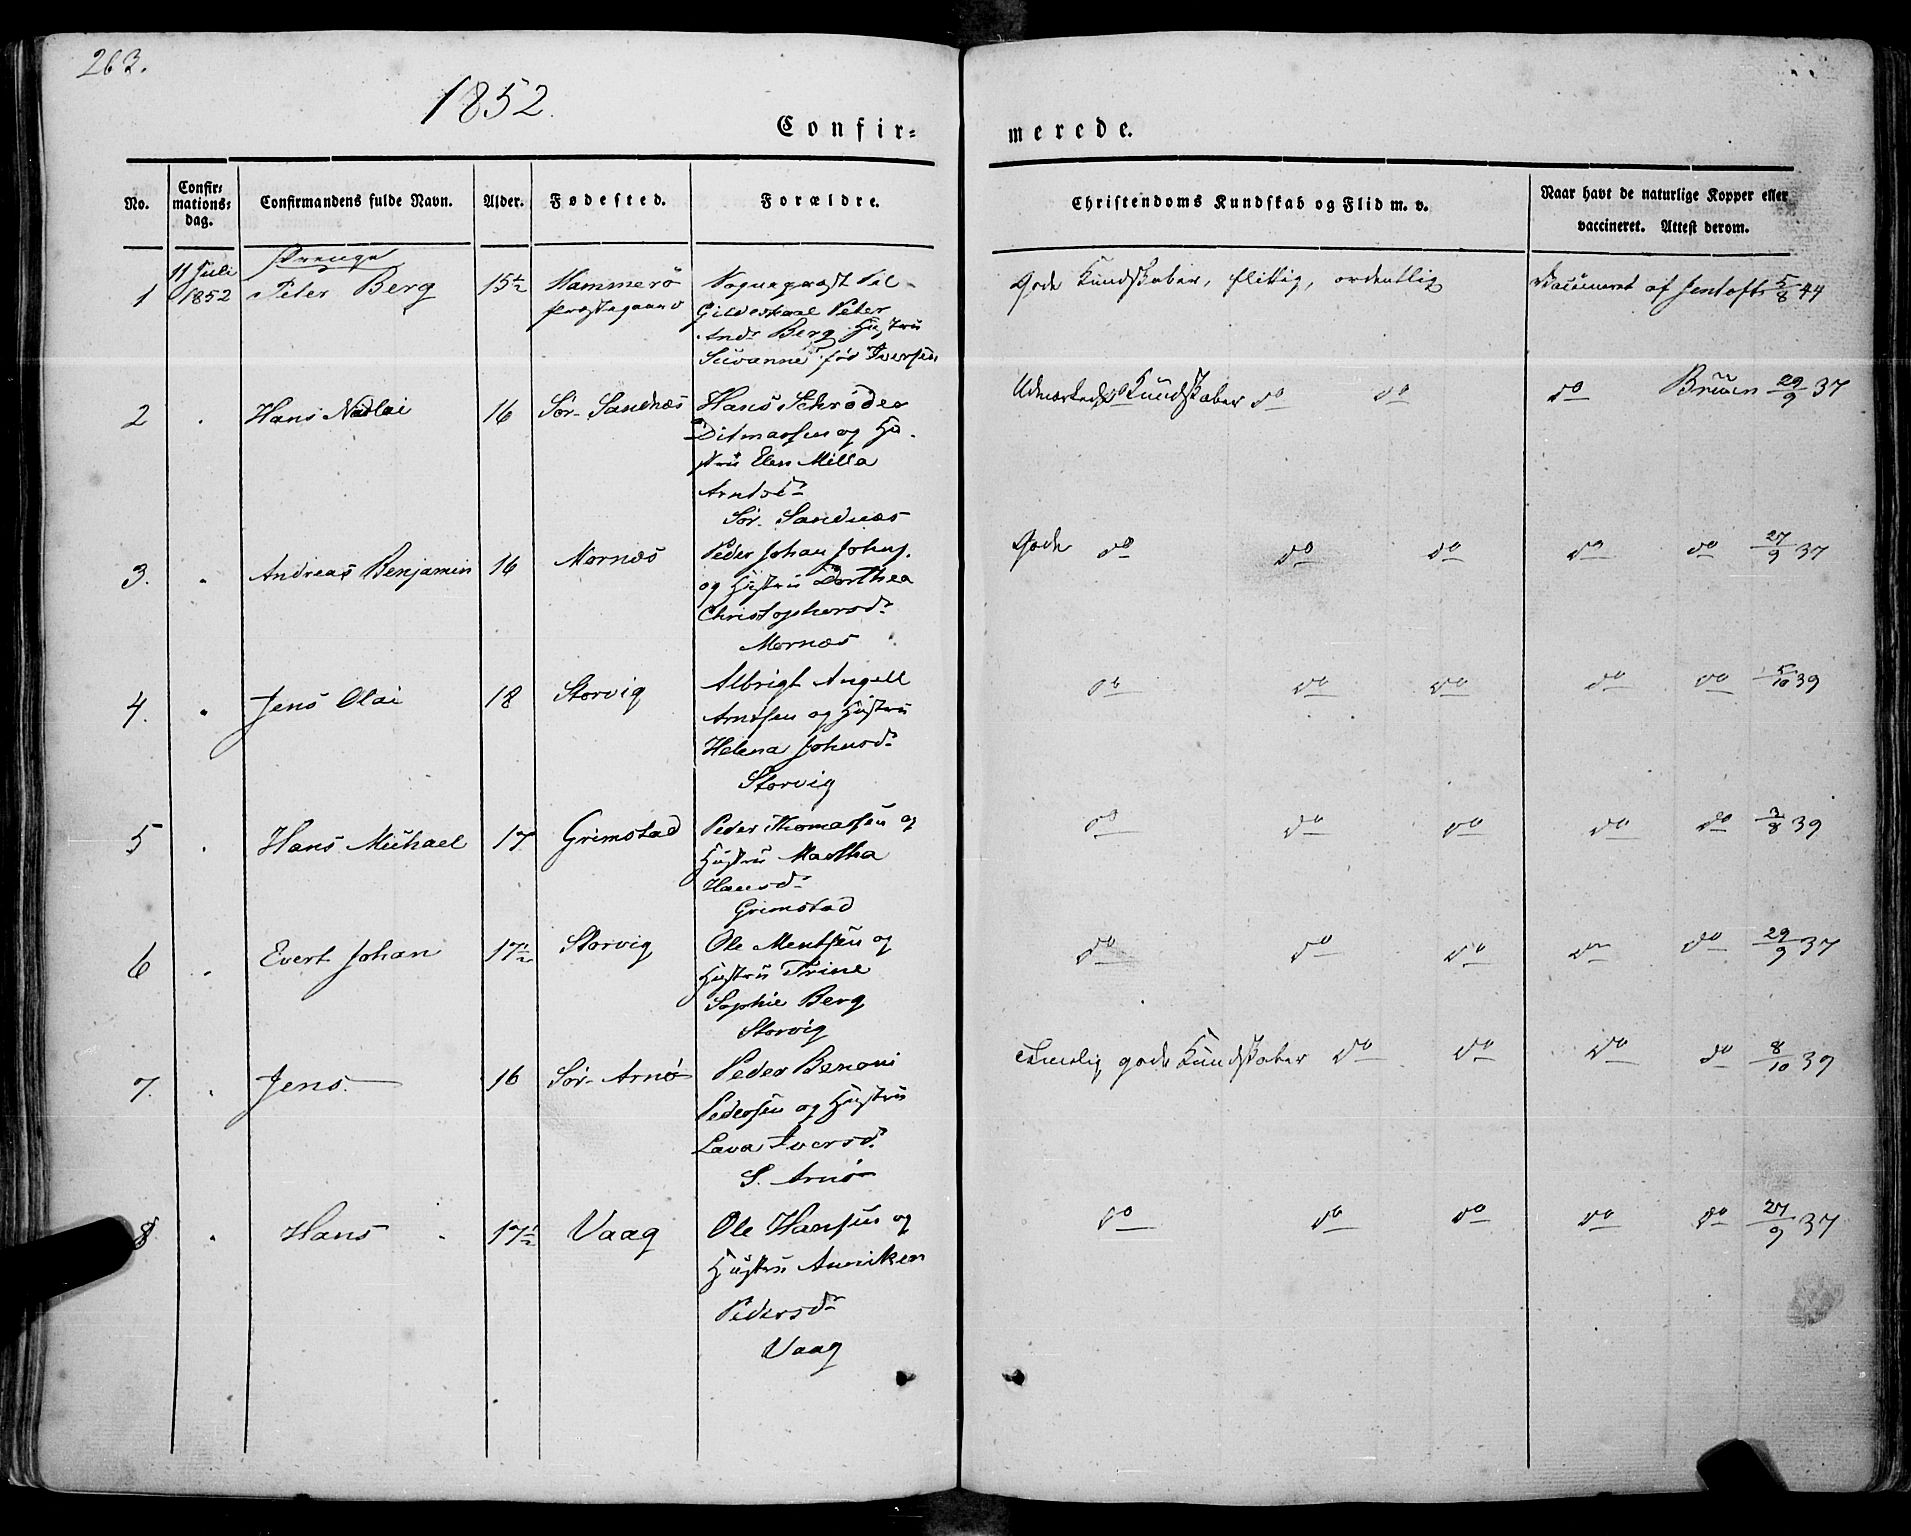 263.
1852.
Confir= merede.
No. Confir= mations= dag. Confirmandens fulde Navn. Alder. Fødested. Forældre. Christendoms Kundskab og Flid m. v. Naar havt de naturlige Kopper eller vaccineret. Attest derom.
Drenge
1 11 Juli 1852 Peter Berg 15½ Hammerø Præstegaard
Sognepræst til
Gildeskaal Peter
Andr Berg Hustru
Susanne fød Iversen
Gode Kundskaber, flittig, ordentlig Vaccineret af Jentoft 5/8 44
2 . Hans Nicolai 16 Sør-Sandnæs
Hans Schrøder
Ditmarsen og Hu-
stru Elen Milla
Arntsd.
Sør-Sandnæs
Udmærkede Kundskaber do do do Bruun 29/9 37
3. " Andreas Benjamin 16 Mornæs
Peder Johan Johns.
og Hustru Dorthea
Christophersd.
Mornæs
Gode do do do do do 27/9 37
4. " Jens Olai 18 Storvig
Albrigt Angell
Arntsen og Hustru
Helena Johnsd.
Storvig
do do do do do 5/10 39
5 . Hans Michael 17 Grimstad
Peder Thomassen og
Hustru Martha
Hansd.
Grimstad
do do do do do 3/8 39
6 " Evert Johan 17½ Storvig
Ole Mentsen og
Hustru Trine
Sophie Berg
Storvig
do do do do do 29/9 37
7. " Jens. 16 Sør-Arnø
Peder Benoni
Pedersen og Hustru
Lava Iversd.
S. Arnø
Temelig gode Kundskaber do do do do 8/10 39
8 " Hans 17½ Vaag
Ole Hansen og
Hustru Anniken
Pedersd.
Vaag
do do do do do 27/9 37